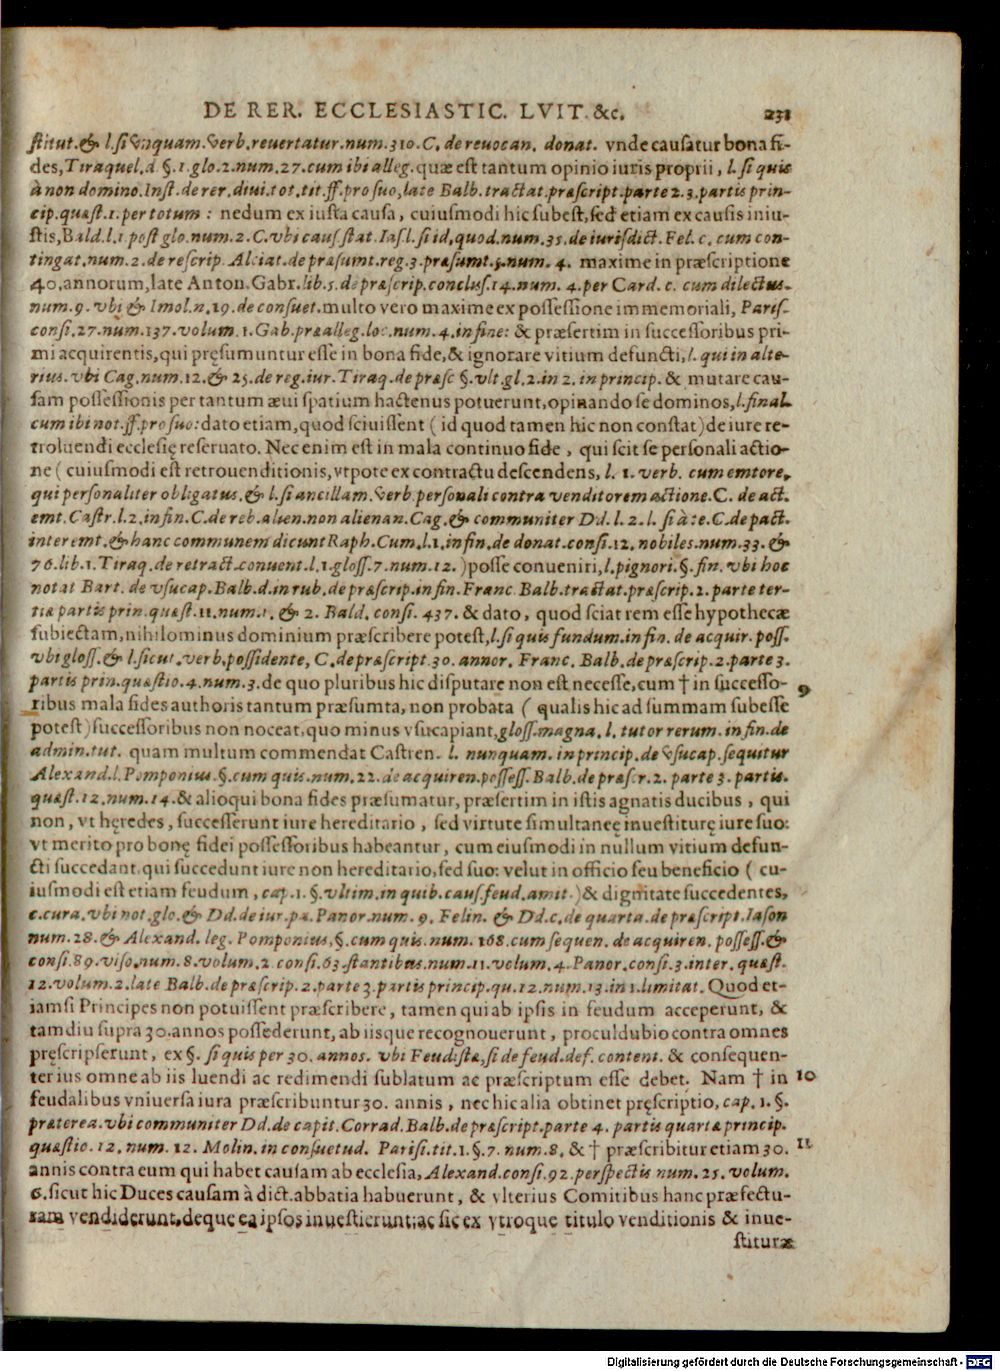 DE RER. ECCLESIASTIC. LVIT. &c. 231
stitut. & l. si vnquam. verb. reuertatur. num. 310. C. de reuocan. donat. vnde causatur bona fi-
des, Tiraquel. d. §. 1. glo. 2. num. 27. cum ibi alleg. quæ est tantum opinio iuris proprii, l. si quis
à non domino. Inst. de rer. diui. tot. tit. ff. pro suo, late Balb. tractat. præscript. parte 2. 3. partis prin-
cip. quæst. 1. per totum: nedum ex iusta causa, cuiusmodi hic subest, sed etiam ex causis iniu-
stis, Bald. l. 1. post glo. num. 2. C. vbi caus. stat. Ias. l. si id, quod. num. 35. de iurisdict. Fel. c. cum con-
tingat. num. 2. de rescrip. Alciat. de præsumt. reg. 3. præsumt. 5. num. 4. maxime in præscriptione
40. annorum, late Anton. Gabr. lib. 5. de præscrip. conclus. 14. num. 4. per Card. c. cum dilectus.
num. 9. vbi & Imol. n. 19. de consuet. multo vero maxime ex possessione immemoriali, Paris.
consi. 27. num. 137. volum. 1. Gab. præalleg. loc. num. 4. in fine: & præsertim in successoribus pri-
mi acquirentis, qui pręsumuntur esse in bona fide, & ignorare vitium defuncti, l. qui in alte-
rius. vbi Cag. num. 12. & 25. de reg. iur. Tiraq. de præsc §. vlt. gl. 2. in 2. in princip. & mutare cau-
sam possessionis per tantum æui spatium hactenus potuerunt, opinando se dominos, l. final.
cum ibi not. ff. pro suo: dato etiam, quod sciuissent (id quod tamen hic non constat) de iure re-
troluendi ecclesię reseruato. Nec enim est in mala continuo fide, qui scit se personali actio-
ne (cuiusmodi est retrouenditionis, vtpote ex contractu descendens, l. 1. verb. cum emtore,
qui personaliter obligatus. & l. si ancillam. verb. personali contra venditorem actione. C. de act.
emt. Castr. l. 2. in fin. C. de reb. alien. non alienan. Cag. & communiter Dd. l. 2. l. si à te. C. de pact.
inter emt. & hanc communem dicunt Raph. Cum. l. 1. in fin. de donat. consi. 12. nobiles. num. 33. &
76. lib. 1. Tiraq. de retract. conuent. l. 1. gloss. 7. num. 12.) posse conueniri, l. pignori. §. fin. vbi hoc
notat Bart. de vsucap. Balb. d. in rub. de præscrip. in fin. Franc. Balb. tractat. præscrip. 2. parte ter-
tiæ partis prin. quæst. 11. num. 1. & 2. Bald. consi. 437. & dato, quod sciat rem esse hypothecæ
subiectam, nihilominus dominium præscribere potest, l. si quis fundum. in fin. de acquir. poss.
vbi gloss. & l. sicut. verb. possidente, C. de præscript. 30. annor. Franc. Balb. de præscrip. 2. parte 3.
partis prin. quæstio. 4. num. 3. de quo pluribus hic disputare non est necesse, cum † in successo- 9
ribus mala fides authoris tantum præsumta, non probata (qualis hic ad summam subesse
potest) successoribus non noceat, quo minus vsucapiant, gloss. magna. l. tutor rerum. in fin. de
admin. tut. quam multum commendat Castren. l. nunquam. in princip. de vsucap. sequitur
Alexand. l. Pomponius. §. cum quis. num. 22. de acquiren. possess. Balb. de præscr. 2. parte 3. partis.
quæst. 12. num. 14. & alioqui bona fides præsumatur, præsertim in istis agnatis ducibus, qui
non, vt hęredes, successerunt iure hereditario, sed virtute simultaneę inuestiturę iure suo:
vt merito pro bonę fidei possessoribus habeantur, cum eiusmodi in nullum vitium defun-
cti succedant, qui succedunt iure non hereditario, sed suo: velut in officio seu beneficio (cu-
iusmodi est etiam feudum, cap. 1. §. vltim. in quib. caus. feud. amit.) & dignitate succedentes,
c. cura. vbi not. glo. & Dd. de iur. pa. Panor. num. 9. Felin. & Dd. c. de quarta. de præscript. Iason
num. 28. & Alexand. leg. Pomponius, §. cum quis. num. 168. cum sequen. de acquiren. possess. &
consi. 89. viso. num. 8. volum. 2. consi. 63. stantibus. num. 11. volum. 4. Panor. consi. 3. inter. quæst.
12. volum. 2. late Balb. de præscrip. 2. parte 3. partis princip. qu. 12. num. 13. in 1. limitat. Quod et-
iamsi Principes non potuissent præscribere, tamen qui ab ipsis in feudum acceperunt, &
tamdiu supra 30. annos possederunt, ab iisque recognouerunt, proculdubio contra omnes
pręscripserunt, ex §. si quis per 30. annos. vbi Feudistæ, si de feud. def. content. & consequen-
ter ius omne ab iis luendi ac redimendi sublatum ac præscriptum esse debet. Nam † in 10
feudalibus vniuersa iura præscribuntur 30. annis, nec hic alia obtinet pręscriptio, cap. 1. §.
præterea. vbi communiter Dd. de capit. Corrad. Balb. de præscript. parte 4. partis quartæ princip.
quæstio. 12. num. 12. Molin. in consuetud. Parisi. tit. 1. §. 7. num. 8. & † præscribitur etiam 30. 11
annis contra eum qui habet causam ab ecclesia, Alexand. consi. 92. perspectis num. 25. volum.
6. sicut hic Duces causam à dict. abbatia habuerunt, & vlterius Comitibus hanc præfectu-
ram vendiderunt, deque ea ipsos inuestierunt; ac sic ex vtroque titulo venditionis & inue-
stituræ
Digitalisierung gefördert durch die Deutsche Forschungsgemeinschaft - DFG